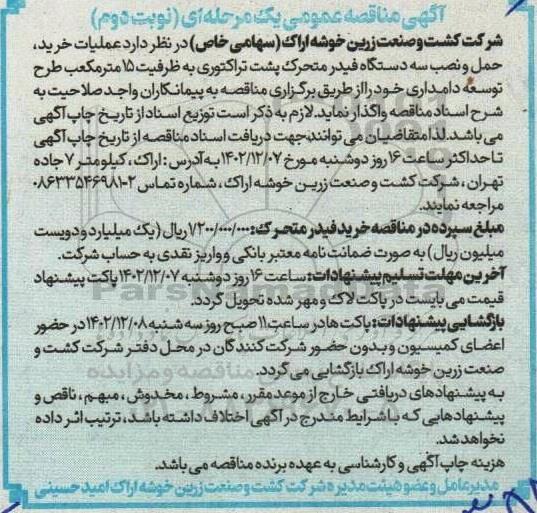 آگهی مناقصه عمومی یک مرحله‌ای (نوبت دوم)
شرکت کشت و صنعت زرین خوشه اراک (سهامی خاص) در نظر دارد عملیات خرید،
حمل و نصب سه دستگاه فیدر متحرک پشت تراکتوری به ظرفیت ۱۵ مترمکعب طرح
توسعه دامداری خود را از طریق برگزاری مناقصه به پیمانکاران واجد صلاحیت به
شرح اسناد مناقصه واگذار نماید. لازم به ذکر است توزیع اسناد از تاریخ چاپ آگهی
می باشد. لذا متقاضیان می توانند، جهت دریافت اسناد مناقصه از تاریخ چاپ آگهی
تا حداکثر ساعت ۱۶ روز دوشنبه مورخ ۱۴۰۲/۱۲/۰۷ به آدرس: اراک، کیلومتر ۷ جاده
تهران، شرکت کشت و صنعت زرین خوشه اراک، شماره تماس ۲-۰۸۶۳۳۵۴۶۹۸۱
مراجعه نمایند.
مبلغ سپرده در مناقصه خرید فیدر متحرک: ۱/۲۰۰/۰۰۰/۰۰۰ ریال (یک میلیارد و دویست
میلیون ریال) به صورت ضمانت نامه معتبر بانکی و واریز نقدی به حساب شرکت.
آخرین مهلت تسلیم پیشنهادات: ساعت ۱۶ روز دوشنبه ۱۴۰۲/۱۲/۰۷ پاکت پیشنهاد
قیمت می بایست در پاکت لاک و مهر شده تحویل گردد.
بازگشایی پیشنهادات: پاکت ها در ساعت ۱۱ صبح روز سه شنبه ۱۴۰۲/۱۲/۰۸ در حضور
اعضای کمیسیون و بدون حضور شرکت کنندگان در محل دفتر شرکت کشت و
صنعت زرین خوشه اراک بازگشایی می گردد.
به پیشنهادهای دریافتی خارج از موعد مقرر، مشروط، مخدوش، مبهم، ناقص و
پیشنهادهایی که با شرایط مندرج در آگهی اختلاف داشته باشد، ترتیب اثر داده
نخواهد شد.
هزینه چاپ آگهی و کارشناسی به عهده برنده مناقصه می باشد.
مدیرعامل و عضو هیئت مدیره شرکت کشت و صنعت زرین خوشه اراک امید حسینی